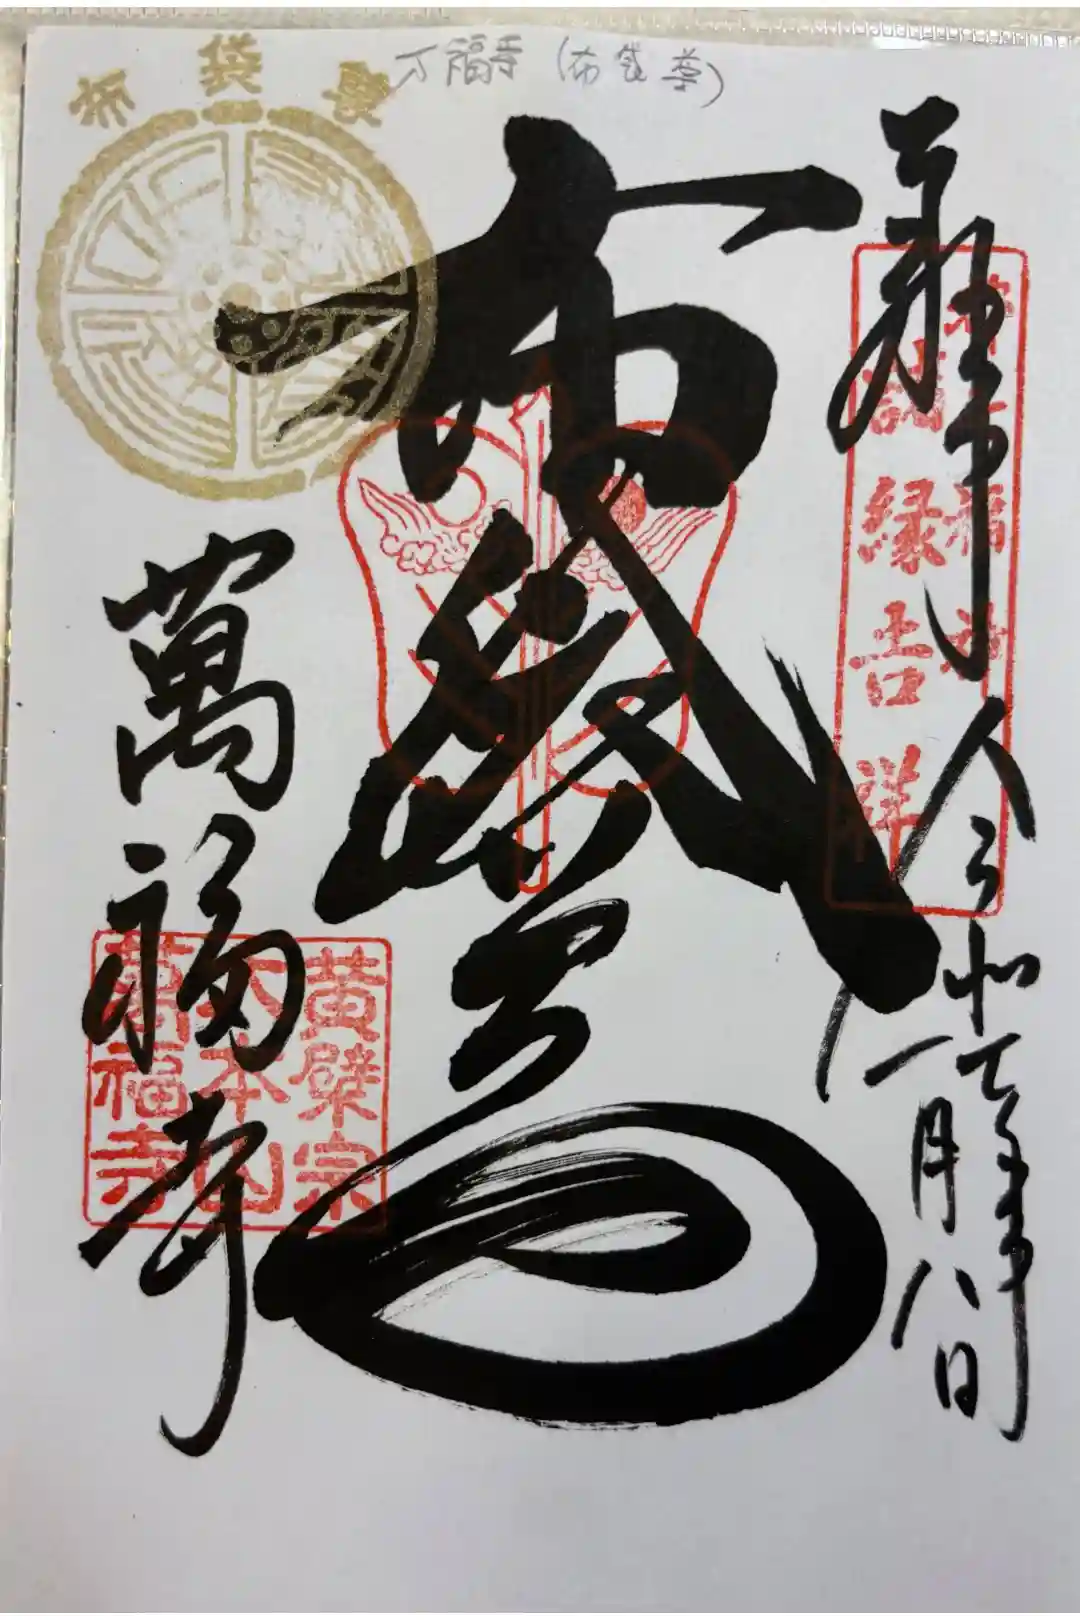 万福寺(布袋尊)
布袋尊
奉拝
令和七年
一月八日
諸縁吉祥
布袋尊
萬福寺
黄檗宗
大本山
萬福寺